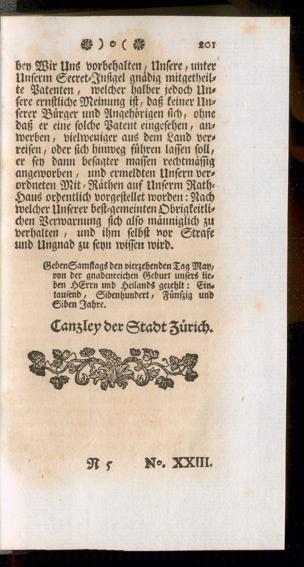 ) o ( 201
bey Wir Uns vorbehalten, Unsere, unter
Unserm Secret-Insigel gnädig mitgetheil-
te Patenten, welcher halber jedoch Un-
sere ernstliche Meinung ist, daß keiner Un-
serer Bürger und Angehörigen sich, ohne
daß er eine solche Patent eingesehen, an-
werben, vielweniger aus dem Land ver-
reisen, oder sich hinweg führen lassen soll,
er sey dann besagter massen rechtmässig
angeworben, und ermeldten Unsern ver-
ordneten Mit-Räthen auf Unserm Rath-
Haus ordentlich vorgestellet worden: Nach
welcher Unserer best-gemeinten Obrigkeitli-
chen Verwarnung sich also männiglich zu
verhalten, und ihm selbst vor Strafe
und Ungnad zu seyn wissen wird.
Geben Samstags den vierzehenden Tag May,
von der gnadenreichen Geburt unsers lie-
ben HErrn und Heilands gezehlt: Ein-
tausend, Sibenhundert, Fünfzig und
Siben Jahre.
Canzley der Stadt Zürich.
N 5 No. XXIII.